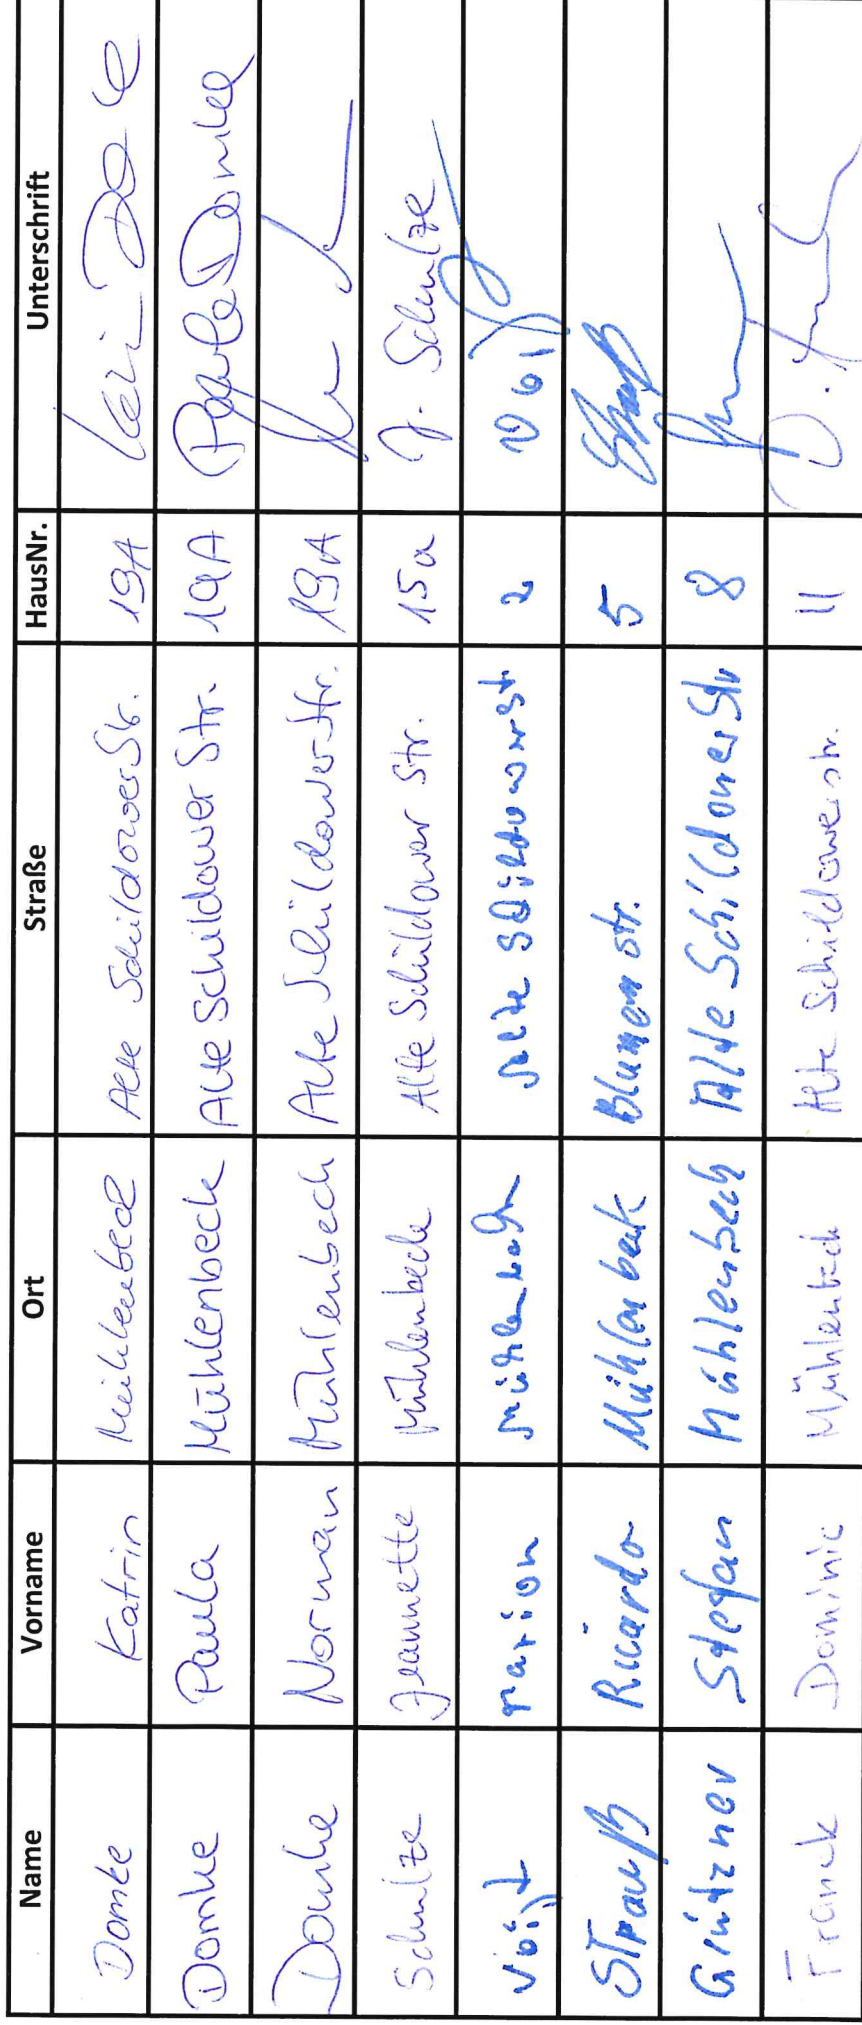 Name Vorname Ort Straße HausNr. Unterschrift
Domke Katrin Mühlenbeck Alte Schildower Str. 19A
Domke Paula Mühlenbeck Alte Schildower Str. 19A Paula Domke
Domke Norman Mühlenbeck Alte Schildower Str. 19A
Schulze Jeannette Mühlenbeck Alte Schildower Str. 15a J. Schulze
Voigt Marion Mühlenbeck Alte Schildowerstr. 2 Voigt
Strauß Ricardo Mühlenbeck Blumenstr. 5
Grützner Stefan Mühlenbeck Alte Schildower Str 8
Franck Dominic Mühlenbeck Alte Schildower str. 11